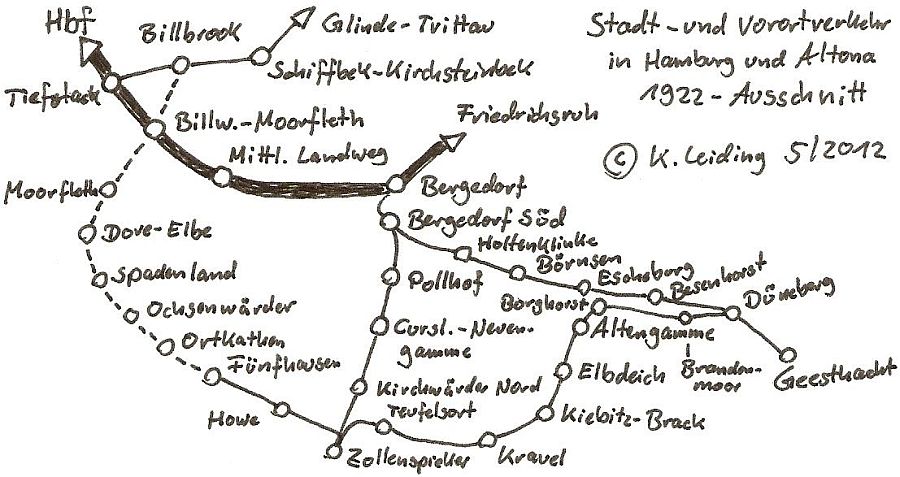 Hbf
Billbrook
Glinde-Trittau
Schiffbek-Kirchsteinbek
Tiefstack
Stadt- und Vorortverkehr
in Hamburg und Altona
1922-Ausschnitt
© K. Leiding 5/2012
Billw.-Moorfleth
Friedrichsruh
Mittl. Landweg
Moorfleth
Bergedorf
Dove-Elbe
Bergedorf Süd
Holtenklinke
Börnsen
Spadenland
Pollhof
Escheburg
Besenhorst
Düneberg
Ochsenwärder
Borghorst
Ortkathen
Cursl.-Neuen-
gamme
Altengamme
Fünfhausen
Elbdeich
Branden-
moor
Geesthacht
Kirchwärder Nord
Teufelsort
Howe
Kiebitz-Brack
Zollenspieker
Kravel